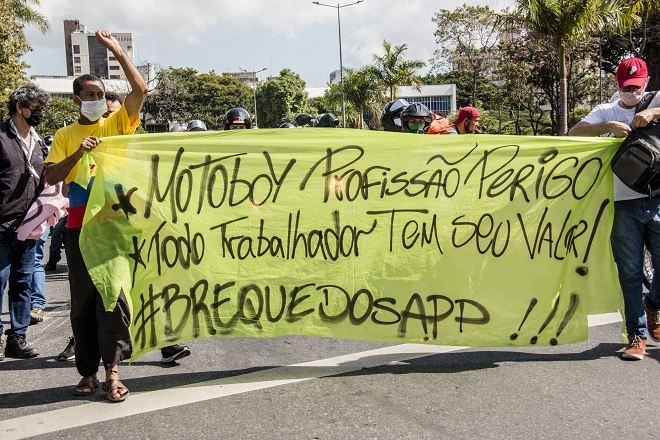 * MOTOBOY PROFISSÃO PERIGO
* TODO TRABALHADOR TEM SEU VALOR!
#BREQUEDOSAPP!!!